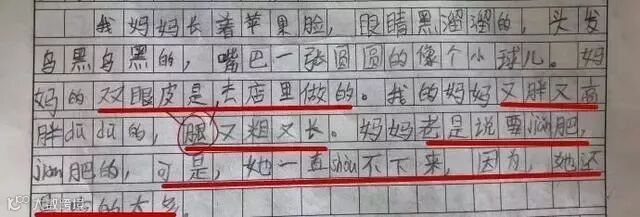 我妈妈长着苹果脸，眼睛黑溜溜的，头发
乌黑乌黑的，嘴巴一张圆圆的像个小球儿。妈
妈的双眼皮是去店里做的。我的妈妈又胖又高
胖dū dū的，腿又粗又长。妈妈老是说要jiǎn肥，
jiǎn肥的，可是，她一直shòu不下来，因为，她还
的大